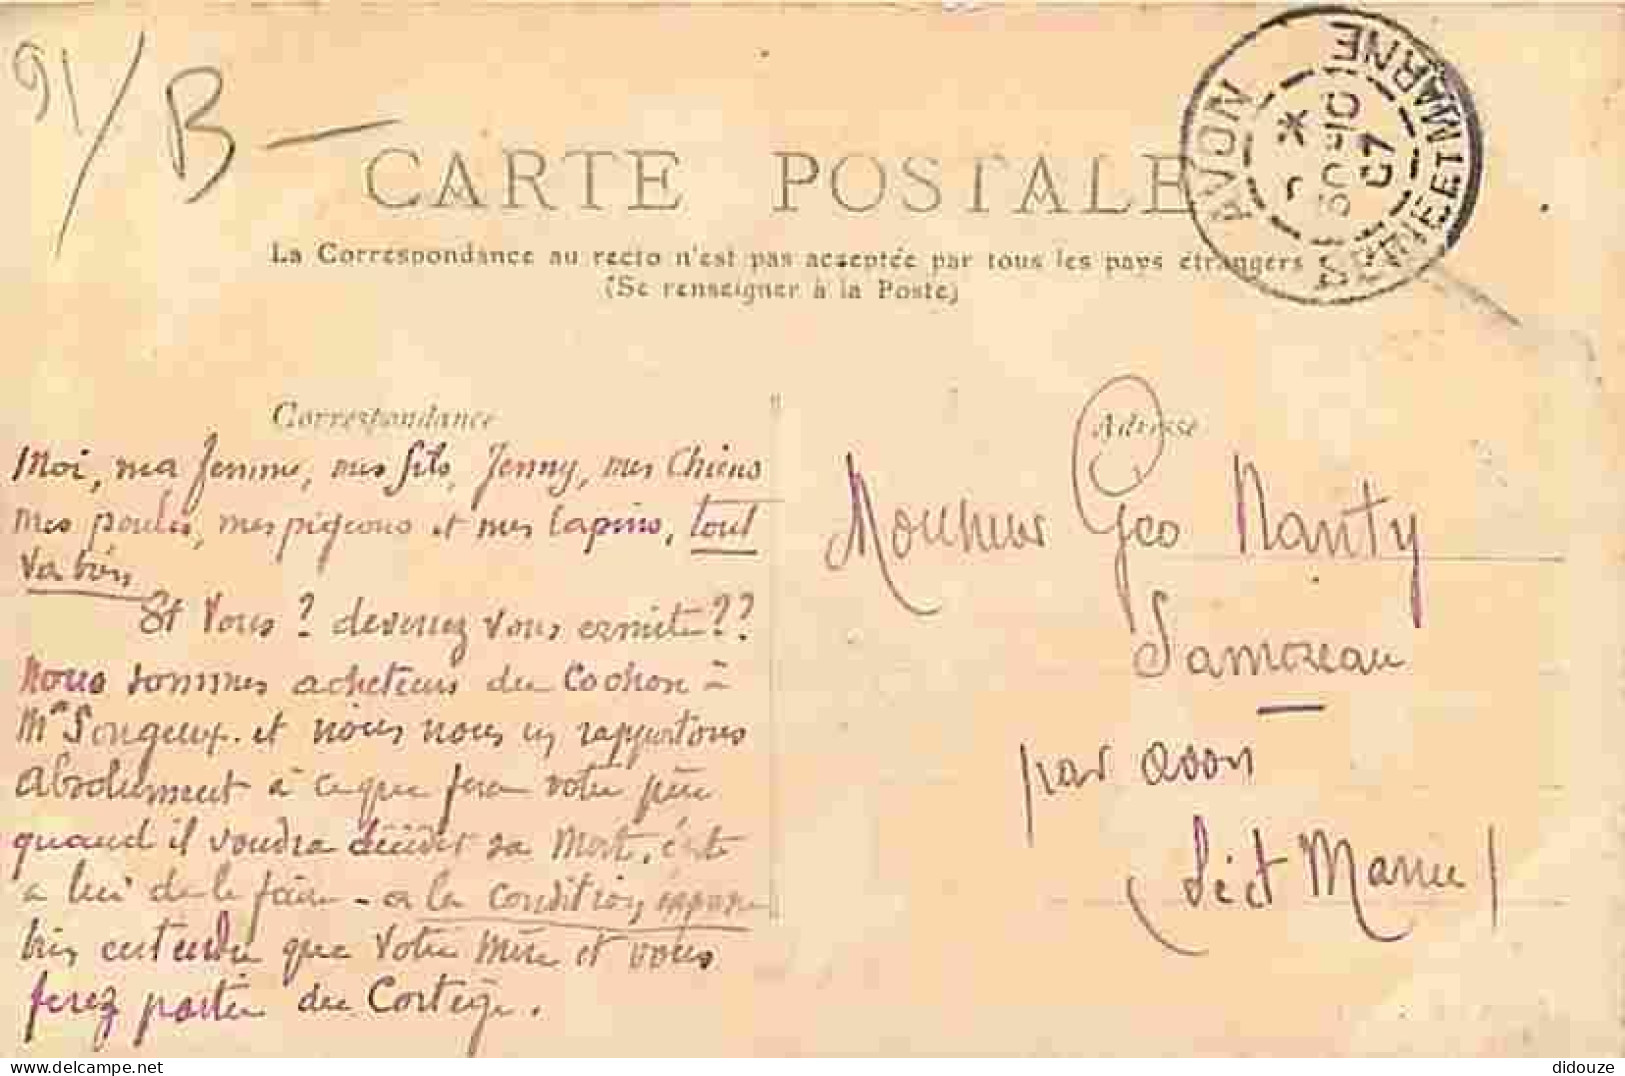 91/B -
CARTE POSTALE
La Correspondance au recto n'est pas acceptée par tous les pays étrangers
(Se renseigner à la Poste)
AVON
SEINE ET MARNE
07
Correspondance
Moi, ma femme, mes fils, Jenny, mes Chiens
mes poules, mes pigeons et mes lapins, tout
va bien
Et Vous ? devenez vous ermite ??
Nous sommes acheteurs du Cochon à
Mr Songeux. et nous nous en rapportons
absolument à ce que fera votre père
quand il voudra décider sa Mort, c'est
a lui de le faire - a la condition, expose
bien entendu que Votre Mère et vous
ferez partie du Cortège.
Adresse
Monsieur Geo Nanty
Samoreau
par avon
(Seine et Marne)
didouze